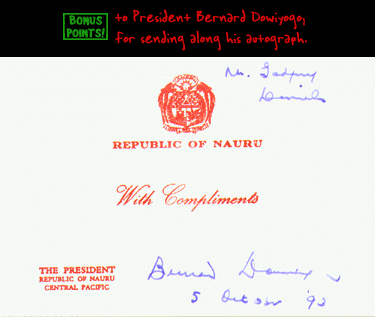 BONUS POINTS!
to President Bernard Dowiyogo,
for sending along his autograph.
Mr. Godfrey
Daniels
REPUBLIC OF NAURU
With Compliments
THE PRESIDENT
REPUBLIC OF NAURU
CENTRAL PACIFIC
Bernard Dowiyogo
5 October '92